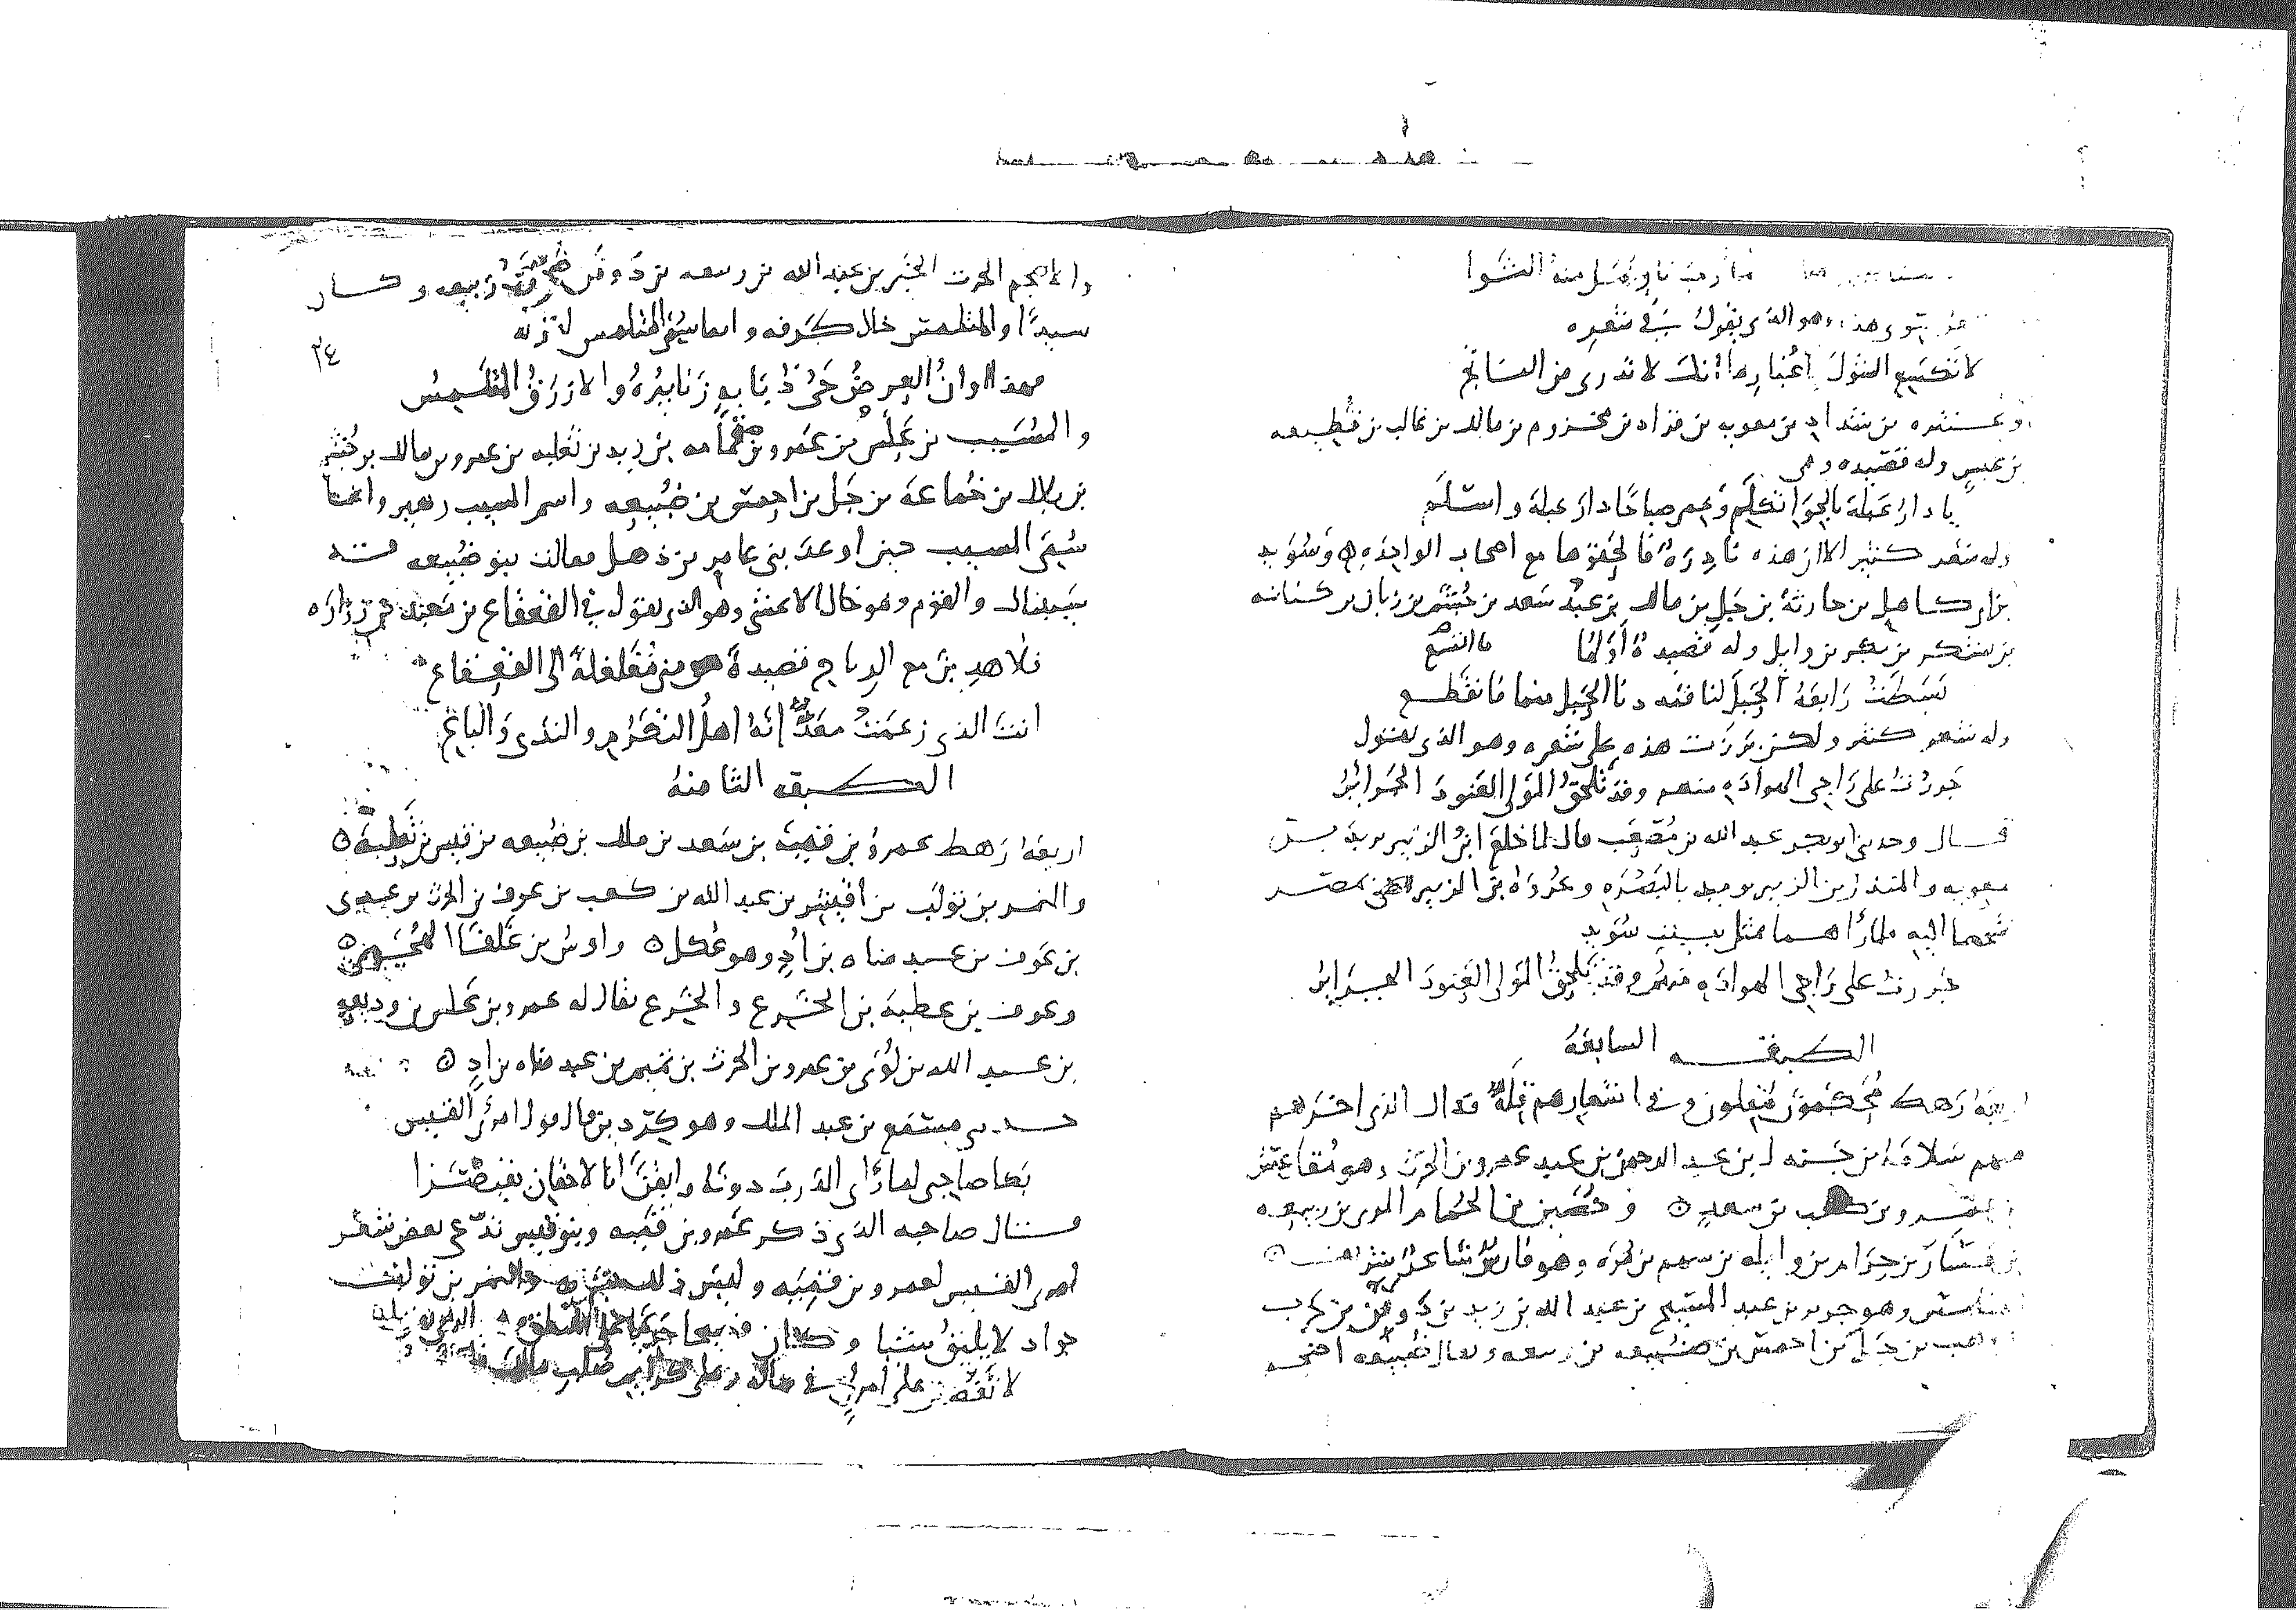 رب ثاو يمل منه الثوا
وهو الذي يقول في شعره
لا تكسع الشول باغبارها انك لا تدري من الناتج
وعنتره بن شداد بن معويه بن قراد بن مخزوم بن مالك بن غالب بن قطيعه
بن عبس وله قصيده وهي
يا دار عبلة بالجوا تكلم وعمي صباحا دار عبلة واسلم
وله شعر كثير الا ان هذه نادرة فالحقوها مع اصحاب الواحده ٥ وسويد
بن ابي كاهل بن حارثة بن حسل بن مالك بن عبد سعد بن جشم بن ذبيان بن كنانه
بن يشكر بن بكر بن وايل وله قصيدة اولها
بسطت رابعة الحبل لنا فمددنا الحبل منها فانقطع
وله شعر كثير ولكن برزت هذه على شعره وهو الذي يقول
جررت على راجي الهوادة منهم وقد تلحق المولى العنود الجراير
قال وحدثني ابو بكر عبد الله بن مصعب قال لما خلع ابن الزبير يزيد بن
معويه والمنذر بن الزبير يوميذ بالبصره وعروة بن الزبير بمصر
شخصا اليه فلما راهما تمثل ببيت سويد
جررت على راجي الهوادة منهم وقد تلحق المولى العنود الجراير
الطبقه السابعة
اربعة رهط محكمون مقلون وفي اشعارهم قلة فذاك الذي اخرهم
منهم سلامة بن جندل بن عبد الرحمن بن عبد عمرو بن الحرث وهو مقاعس
بن عمرو بن كعب بن سعد ٥ وحصين بن الحمام المري بن ربيعه
بن مساب بن حرام بن وايله بن سهم بن مره وهو فارس شاعر شريف ٥
المتلمس وهو جرير بن عبد المسيح بن عبد الله بن زيد بن دوفن بن حرب
بن وهب بن جلي بن احمس بن ضبيعه بن ربيعه ويقال ضبيعه اضجم
والاضجم الحرث الخير بن عبد الله بن ربيعه بن دوفن ضبيعة ربيعه وكان
سيدا والمتلمس خال طرفه وانما سمي المتلمس لقوله
فهذا اوان العرض حي ذبابه زنابيره والازرق المتلمس
٣٤
والمسيب بن علس بن عمرو بن قمامه بن زيد بن ثعلبه بن عمرو بن مالك بن جشم
بن بلال بن خماعة بن جلي بن احمس بن ضبيعه واسم المسيب زهير وانما
سمي المسيب حين اوعد بني عامر بن ذهل فقالت بنو ضبيعه قد
سيبناك والقوم وهو خال الاعشى وهو الذي يقول في القعقاع بن معبد بن زراره
فلاهدين مع الرياح قصيدة مني مغلغلة الى القعقاع
انت الذي زعمت معد انه اهل التكرم والندى والباع
الطبقه الثامنة
اربعة رهط عمرو بن قميه بن سعد بن ملك بن ضبيعه بن قيس بن ثعلبة ٥
والنمر بن تولب بن اقيش بن عبد الله بن كعب بن عوف بن الحرث بن عدي
بن عوف بن عبد مناه بن اد وهو عكل ٥ واوس بن غلفا الهجيمي ٥
وعوف بن عطية بن الخرع والخرع يقال له عمرو بن عيس بن وديعه
بن عبد الله بن لؤي بن عمرو بن الحرث بن تيم بن عبد مناه بن اد ٥
حدثني مسمع بن عبد الملك وهو كردين قال قول امرئ القيس
بكا صاحبي لما راى الدرب دونه وايقن انا لاحقان بقيصرا
قال صاحبه الذي ذكر عمرو بن قميه وبنو قيس تدعي بعض شعر
امرئ القيس لعمرو بن قميه وليس ذلك بشي والنمر بن تولب
جواد لا يليق شيا وكان فصيحا جريا على المنطق
لا تغضبن على امرئ في ماله وعلى كرايم صلب مالك فاغضب